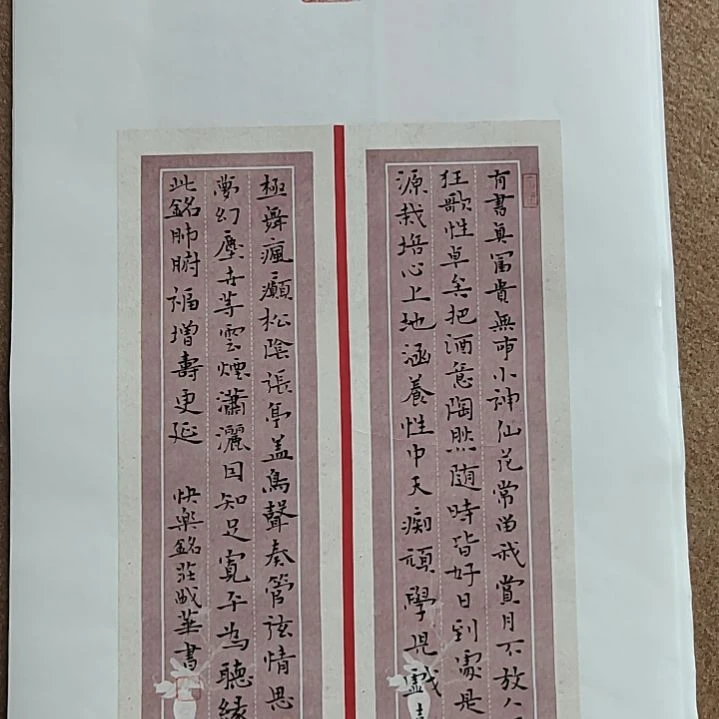 有書真富貴無事小神仙花常留我賞月不放
狂歌性卓矣把酒意陶然随時皆好日到處是
源栽培心上地涵養性中天痴頑學児戲
極舞瘋癲松陰張亭盖鳥聲奏管弦情思
夢幻塵世等雲煙瀟灑因知足寬平為聽緣
此銘肺腑福增壽更延
快樂銘莊成華書